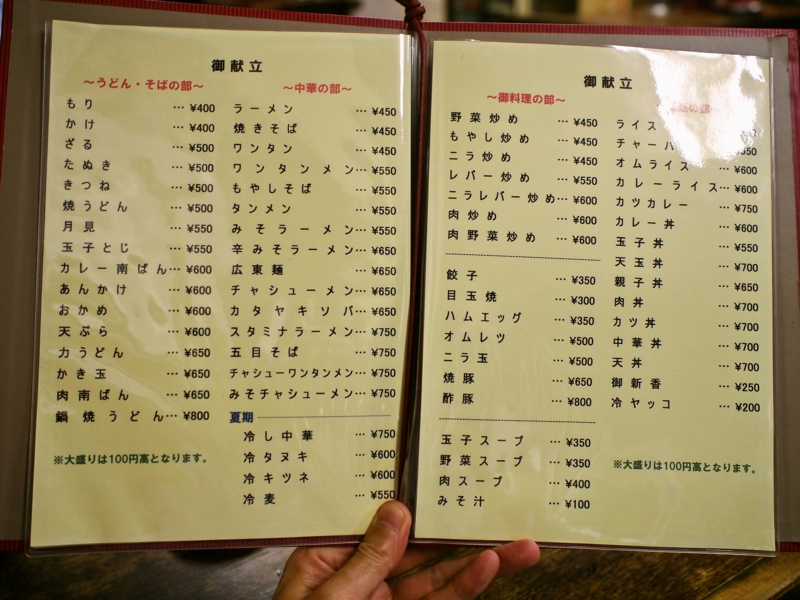 御献立
～うどん・そばの部～
もり … ¥400
かけ … ¥400
ざる … ¥500
たぬき … ¥500
きつね … ¥500
焼うどん … ¥500
月見 … ¥550
玉子とじ … ¥550
カレー南ばん… ¥600
あんかけ … ¥600
おかめ … ¥600
天ぷら … ¥600
力うどん … ¥650
かき玉 … ¥650
肉南ばん … ¥650
鍋焼うどん… ¥800
※大盛りは100円高となります。
～中華の部～
ラーメン … ¥450
焼きそば … ¥450
ワンタン … ¥450
ワンタンメン… ¥550
もやしそば … ¥550
タンメン … ¥550
みそラーメン… ¥550
辛みそラーメン… ¥650
広東麺 … ¥650
チャシューメン… ¥650
カタヤキソバ… ¥650
スタミナラーメン… ¥750
五目そば … ¥750
チャシューワンタンメン… ¥750
みそチャシューメン… ¥750
夏期
冷し中華 … ¥750
冷タヌキ … ¥600
冷キツネ … ¥600
冷麦 … ¥550
御献立
～御料理の部～
野菜炒め … ¥450
もやし炒め … ¥450
ニラ炒め … ¥450
レバー炒め … ¥550
ニラレバー炒め… ¥600
肉炒め … ¥600
肉野菜炒め … ¥600
餃子 … ¥350
目玉焼 … ¥300
ハムエッグ … ¥350
オムレツ … ¥500
ニラ玉 … ¥500
焼豚 … ¥650
酢豚 … ¥800
玉子スープ … ¥350
野菜スープ … ¥350
肉スープ … ¥400
みそ汁 … ¥100
の部～
ライス
チャーハ
オムライス … ¥600
カレーライス… ¥600
カツカレー … ¥750
カレー丼 … ¥600
玉子丼 … ¥550
天玉丼 … ¥700
親子丼 … ¥650
肉丼 … ¥700
カツ丼 … ¥700
中華丼 … ¥700
天丼 … ¥700
御新香 … ¥250
冷ヤッコ … ¥200
※大盛りは100円高となります。